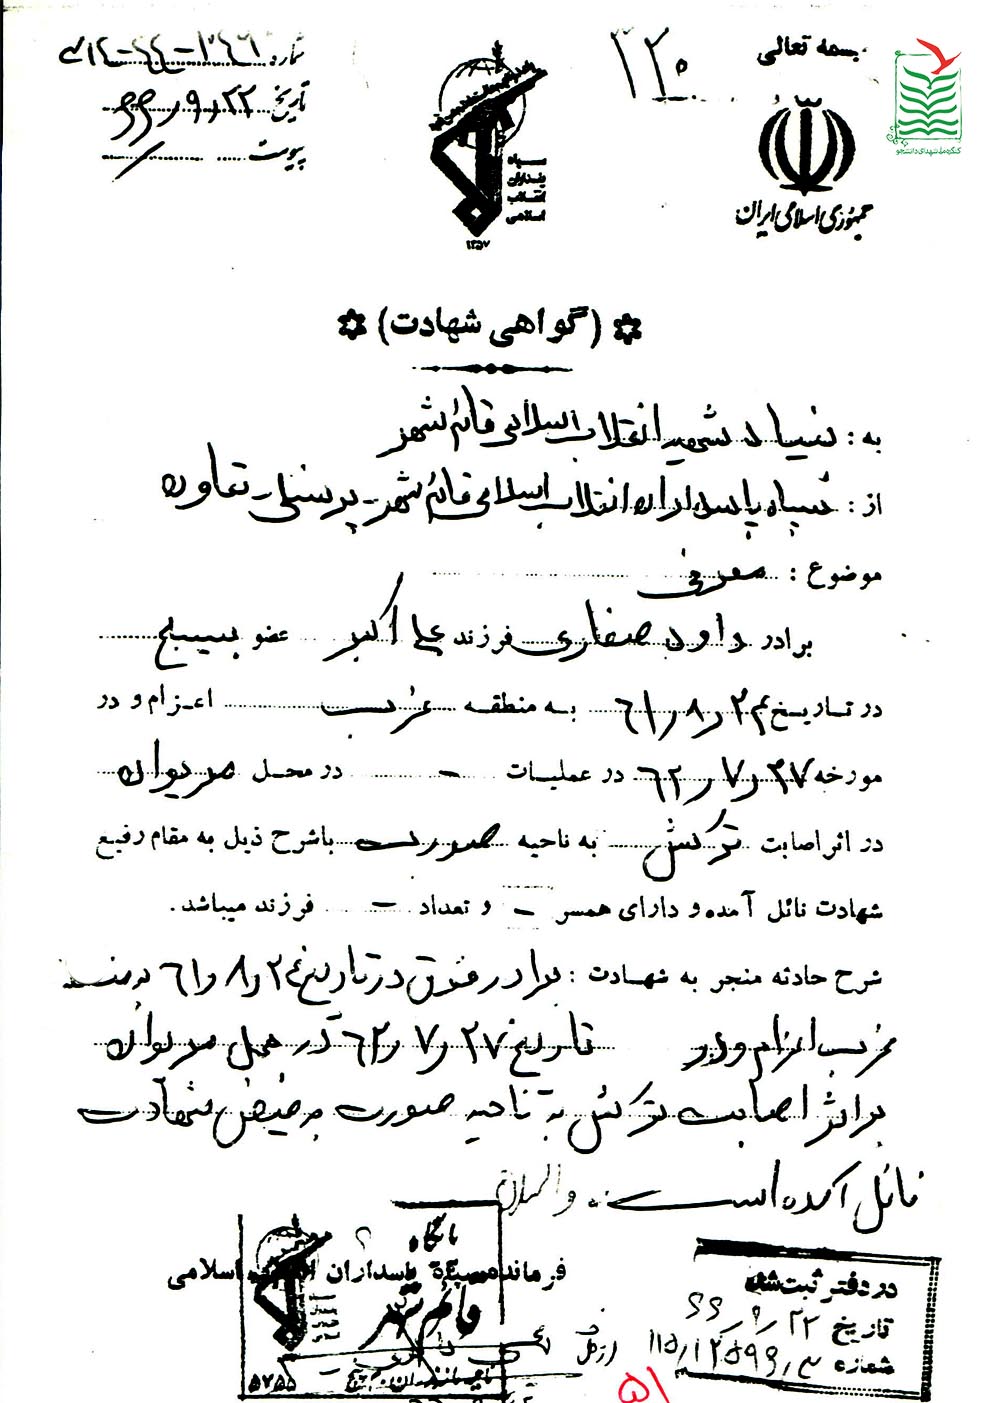 بسمه تعالی
کنگره ملی شهدای دانشجو
جمهوری اسلامی ایران
سپاه
پاسداران
انقلاب
اسلامی
۱۳۵۷
شماره
تاریخ ۶۶٫۹٫۲۲
پیوست
(گواهی شهادت)
به : بنیاد شهید انقلاب اسلامی قائم شهر
از : سپاه پاسداران انقلاب اسلامی قائم شهر - پرسنلی - تعاون
موضوع : معرفی
برادر داود صفاری فرزند علی اکبر عضو بسیج
در تاریخ ۲۴٫۸٫۶۱ به منطقه غرب اعزام و در
مورخه ۲۷٫۷٫۶۲ در عملیات - در محل مریوان
در اثر اصابت ترکش به ناحیه صورت باشرح ذیل به مقام رفیع
شهادت نائل آمده و دارای همسر - و تعداد - فرزند میباشد.
شرح حادثه منجر به شهادت : برادر فوق در تاریخ ۲۴٫۸٫۶۱ به
غرب اعزام و در تاریخ ۲۷٫۷٫۶۲ در محل مریوان
بر اثر اصابت ترکش به ناحیه صورت به فیض شهادت
نائل آمده است. والسلام
فرمانده سپاه پاسداران اسلامی
قائم شهر
۵۲۵۵
در دفتر ثبت شد
تاریخ ۶۶٫۹٫۲۲
شماره
۵۱